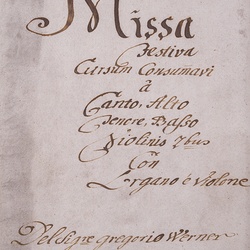 Missa
Festiva
Cursum Consumavi
â
Canto, Alto
Tenore, Basso
Violinis 2bus
Con
Organo è Violone
Del Sigre gregorio Werner